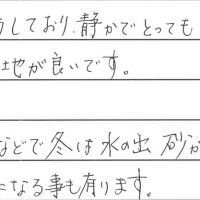 しており、静かでとっても
地が良いです。
などで冬は水の出 砂が
になる事も有ります。